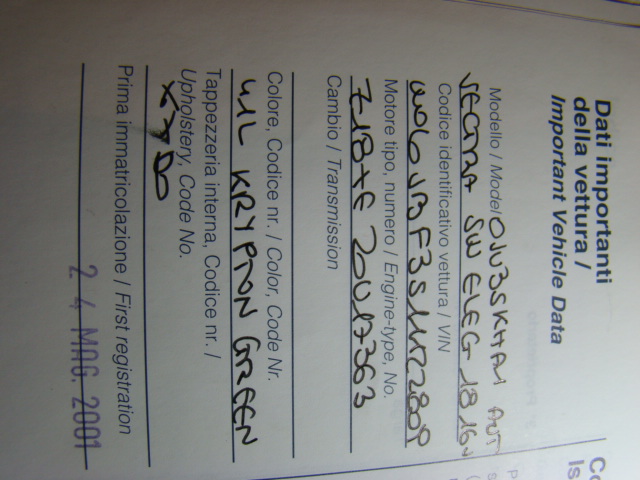 Dati importanti
della vettura /
Important Vehicle Data
Modello / Model OJV3SKHA1 AUT
VECTRA SW ELEG 1.8 16V
Codice identificativo vettura / VIN
Motore tipo, numero / Engine-type, No.
Z18XE 20U17363
Cambio / Transmission
Colore, Codice nr. / Color, Code Nr.
41L KRYPTON GREEN
Tappezzeria interna, Codice nr. /
Upholstery, Code No.
Prima immatricolazione / First registration
24 MAG. 2001